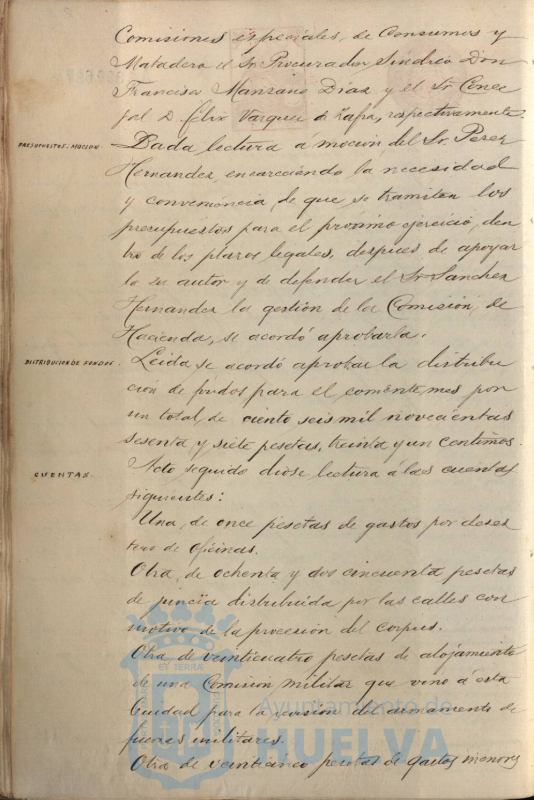 Comisiones especiales, de Consumos y
Matadero el Sr Procurador Síndico Don
Francisco Manzano Díaz y el Sr Conce
jal D. Félix Vazquez de Zafra, respectivamente.
PRESUPUESTOS. MOCION.
Dada lectura á moción del Sr. Perez
Hernandez, encareciendo la necesidad
y conveniencia, de que se tramiten los
presupuestos para el próximo ejercicio, den
tro de los plazos legales, despues de apoyar
la su autor y de defender el Sr Sanchez
Hernandez la gestión de la Comisión, de
Hacienda, se acordó aprobarla.
DISTRIBUCION DE FONDOS.
Leida, se acordó aprobar la distribu
ción de fondos para el corriente mes por
un total, de ciento seis mil novecientas
sesenta y siete pesetas, treinta y un centimos.
CUENTAS.
Acto seguido diose lectura á las cuentas
siguientes:
Una, de once pesetas de gastos por deses
tero de oficinas.
Otra, de ochenta y dos cincuenta pesetas
de juncia distribuida por las calles con
motivo de la procesión del corpus.
Otra de veinticuatro pesetas de alojamiento
de una Comisión militar que vino á esta
Ciudad para la revisión del armamento de
fuerzas militares.
Otra de veinticinco pesetas de gastos menores
Ayuntamiento de
HUELVA